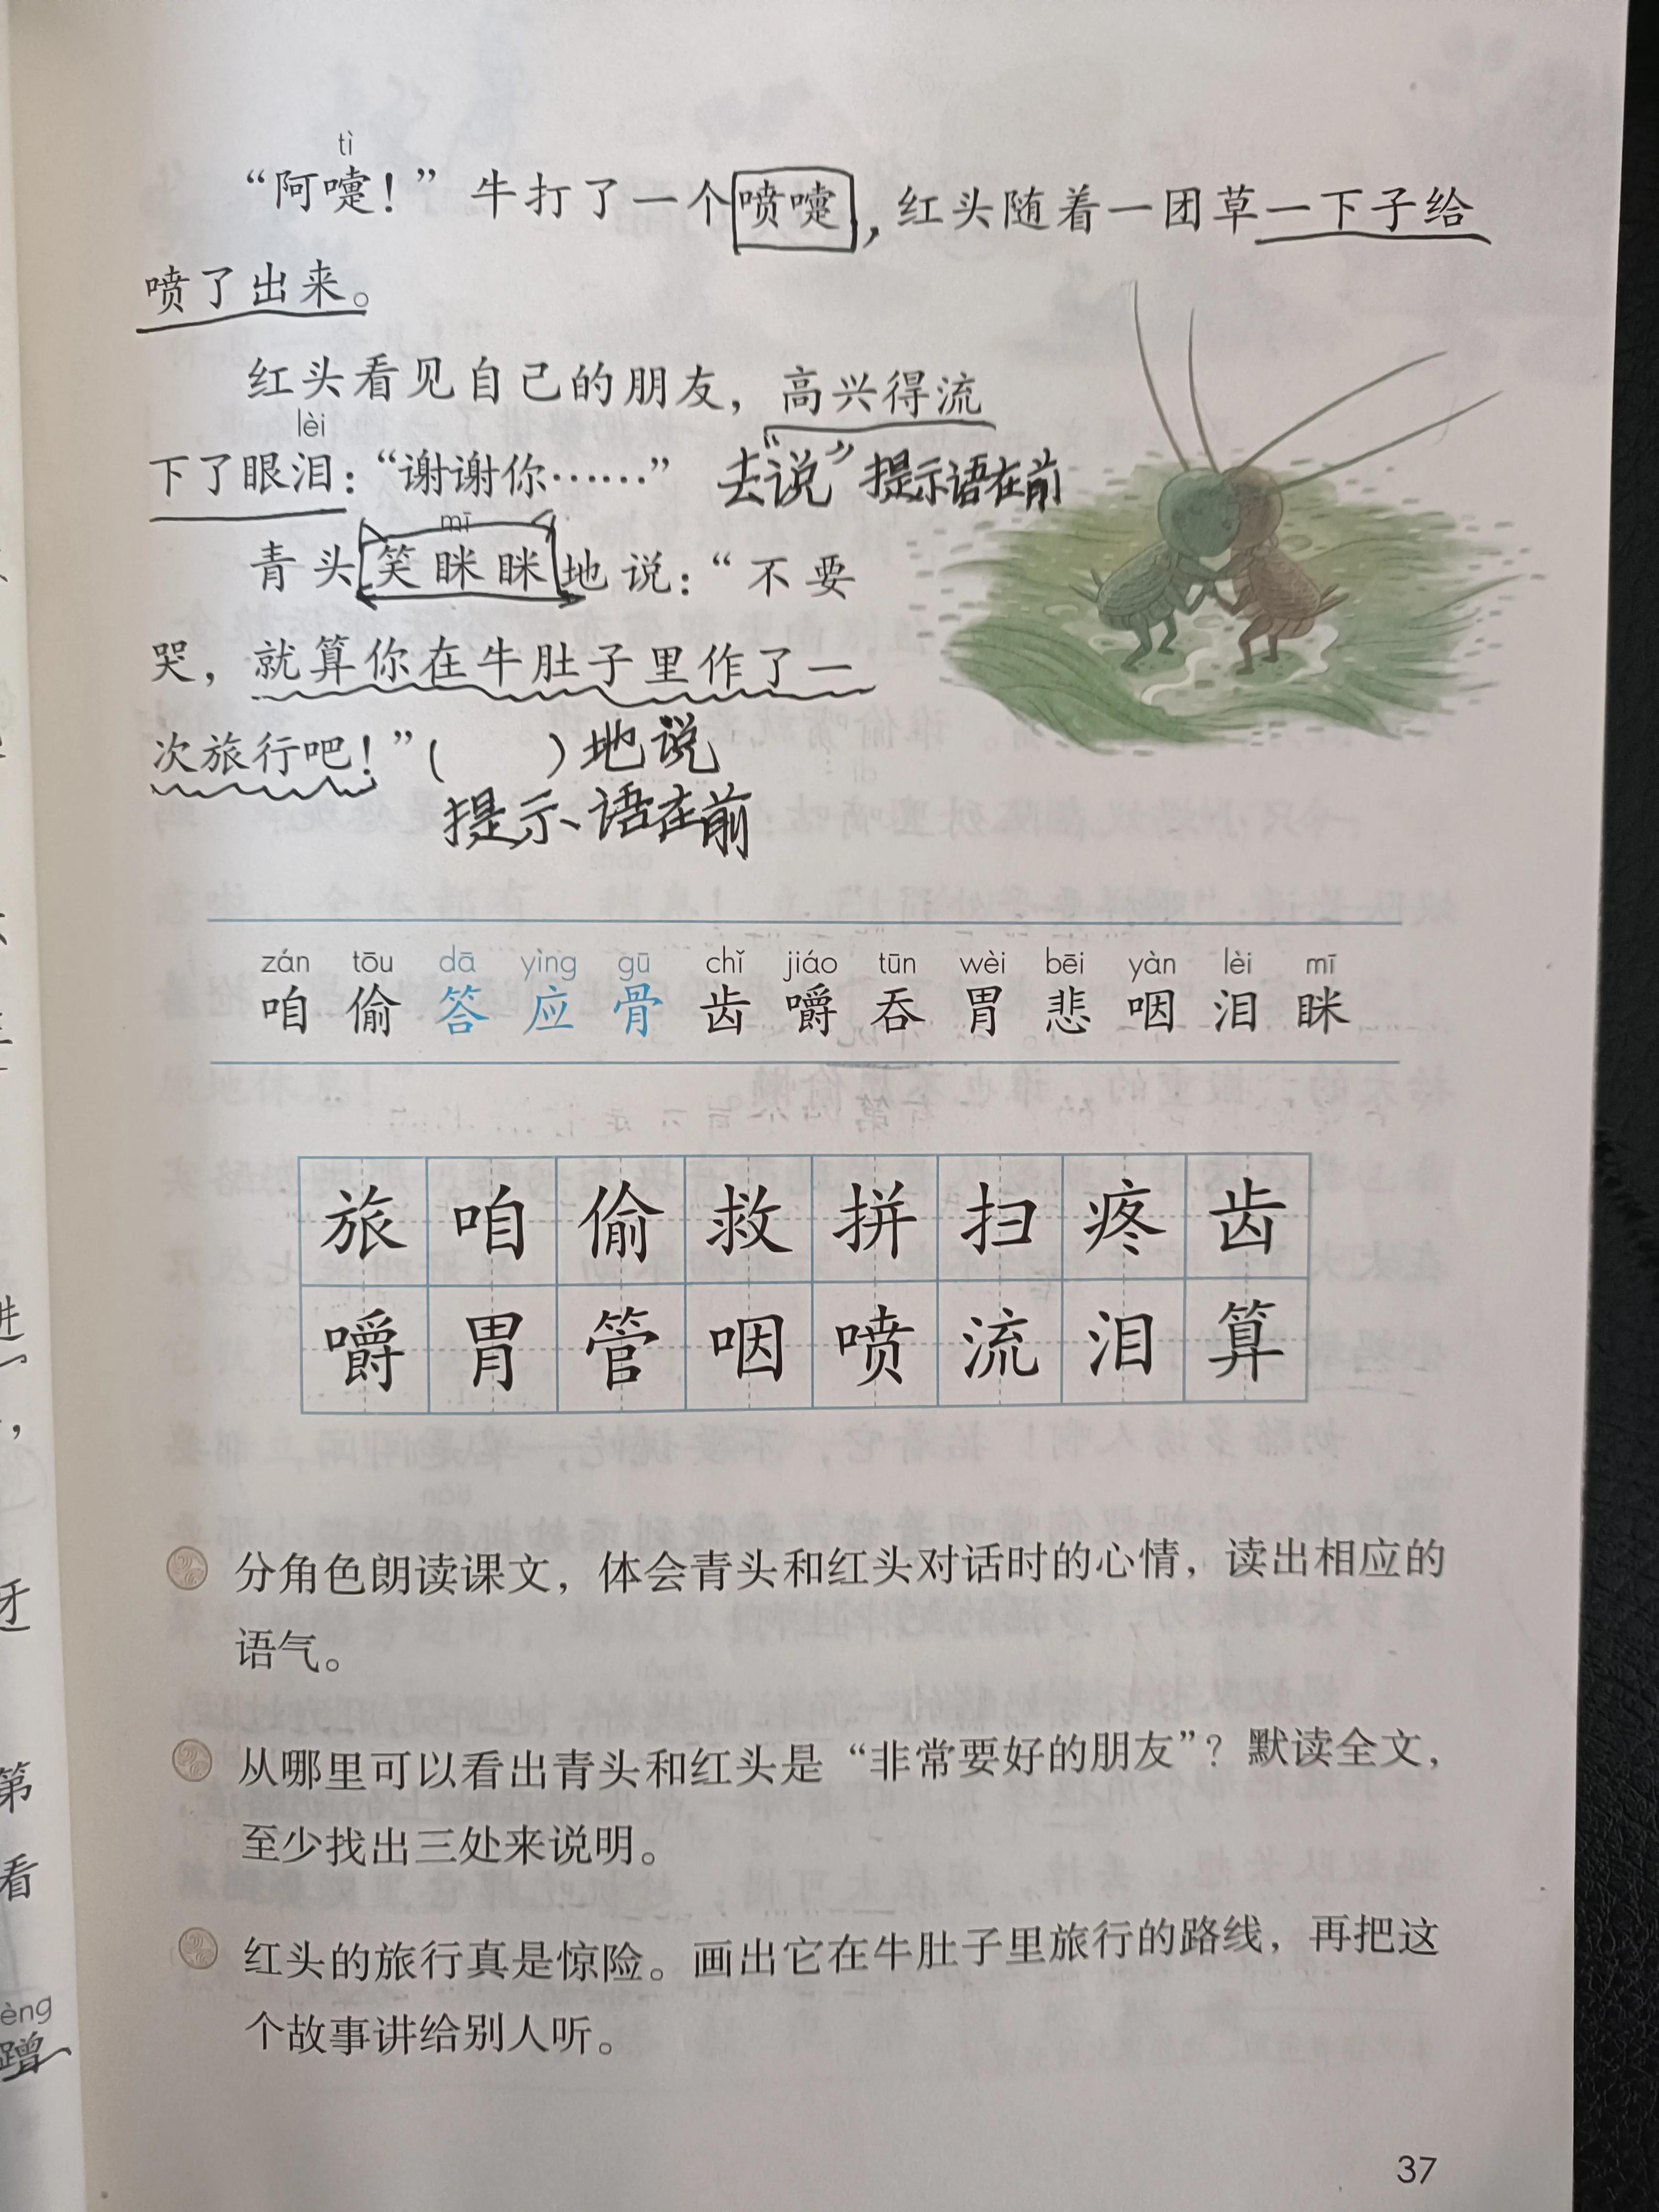 tì
“阿嚏！”牛打了一个喷嚏，红头随着一团草一下子给
喷了出来。
红头看见自己的朋友，高兴得流
lèi
下了眼泪：“谢谢你……” 去“说”提示语在前
mī
青头笑眯眯地说：“不要
哭，就算你在牛肚子里作了一
次旅行吧！”（ ）地说
提示语在前
zán tōu dā yìng gū chǐ jiáo tūn wèi bēi yàn lèi mī
咱 偷 答 应 骨 齿 嚼 吞 胃 悲 咽 泪 眯
旅 咱 偷 救 拼 扫 疼 齿
嚼 胃 管 咽 喷 流 泪 算
分角色朗读课文，体会青头和红头对话时的心情，读出相应的
语气。
从哪里可以看出青头和红头是“非常要好的朋友”？默读全文，
至少找出三处来说明。
红头的旅行真是惊险。画出它在牛肚子里旅行的路线，再把这
个故事讲给别人听。
37
进
呀
第
看
èng
蹭